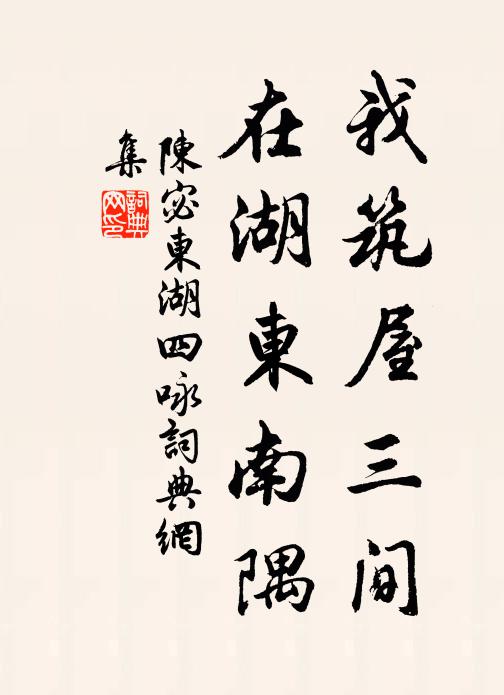 我筑屋三间
在湖東南隅
陳宓東湖四咏詞典網
集
詞典
网印